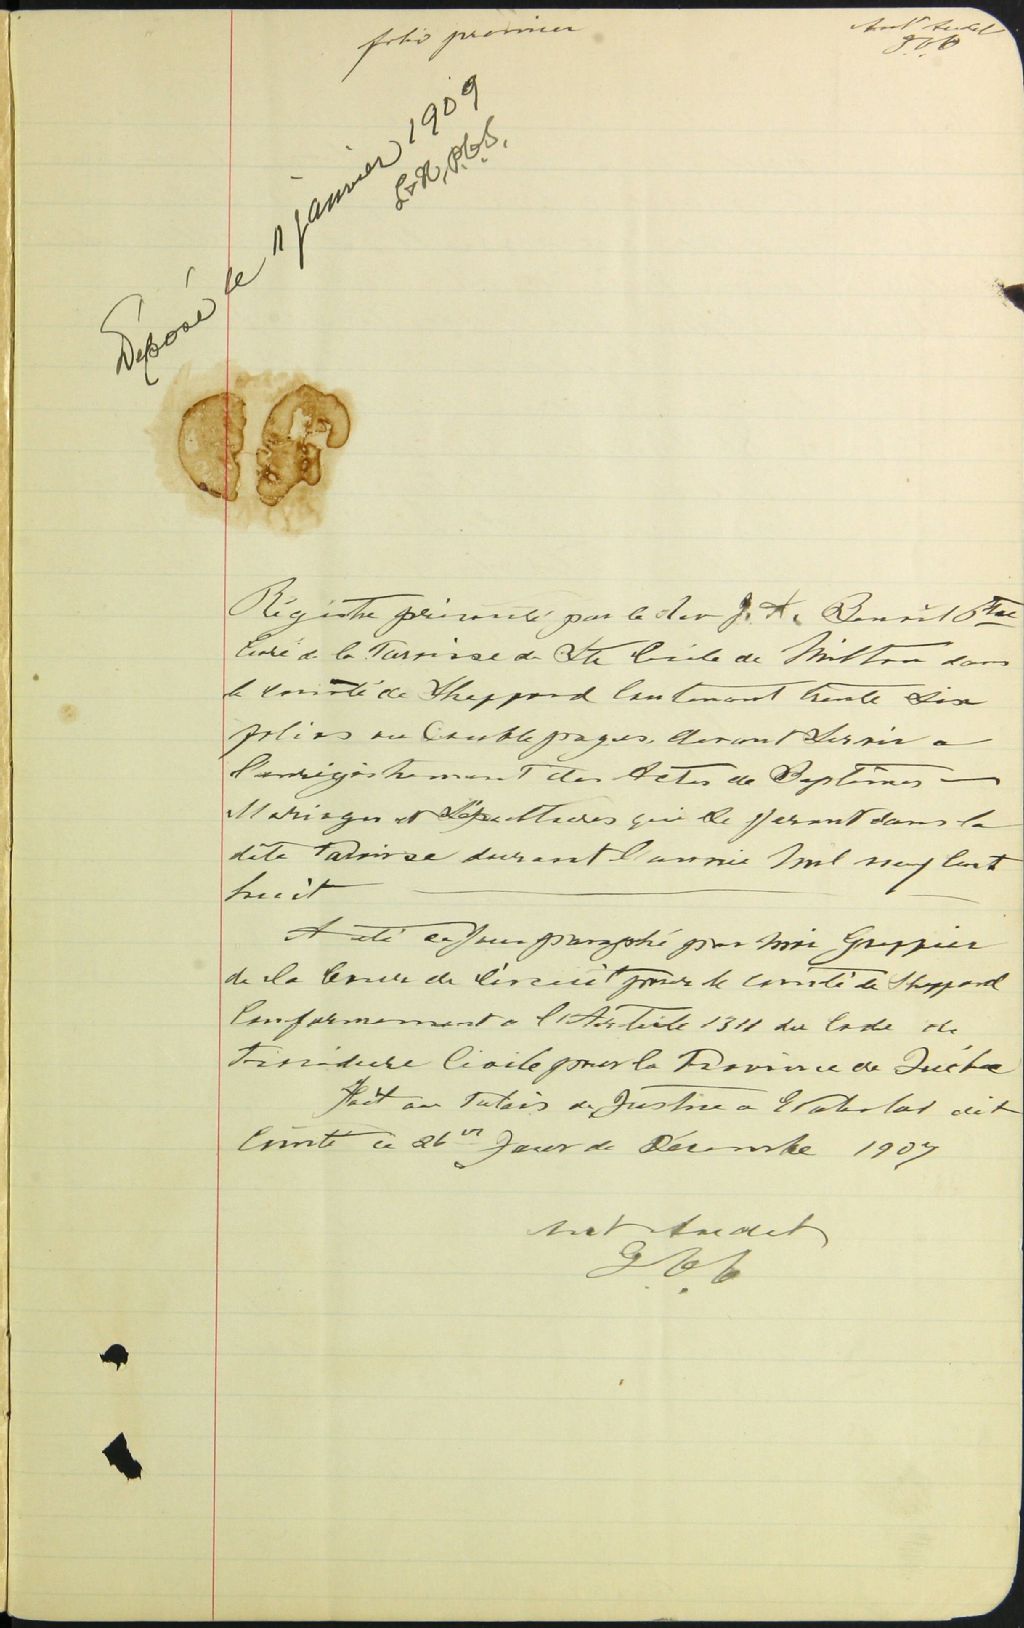 folio premier
Ant Audet
G. C. C
Déposé le 11 janvier 1909
L&R, P.C.S.
Régistre présenté par le Rev J. A. Benoit Ptre
Curé de la Paroisse de Ste Cécile de Milton dans
le comté de Sheppord Contenant trente Six
folios ou Double pages, devant Servir a
l'enrégistrement des Actes de Baptêmes
Mariages et Sépultures qui Se feront dans la
dite Paroisse durant l'année Mil neuf Cent
huit
A été ce Jour paraphé par moi Greffier
de la Cour de Circuit pour le comté de Sheppord
Conformement a l'Article 1311 du Code de
Procédure Civile pour la Province de Québec
Fait au Palais de Justice a Waterloo dit
Comté ce 26me Jour de Décembre 1907
Ant Audet
G. C. C